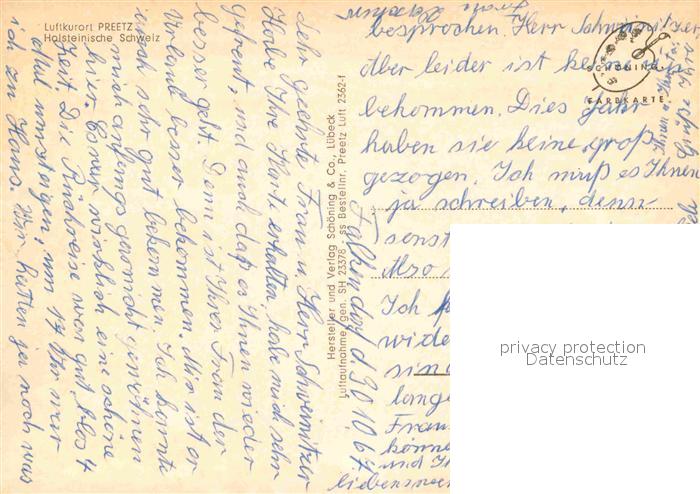 Luftkurort PREETZ
Holsteinische Schweiz
Falkendorf d 30 10 67
Sehr geehrte Frau u Herr Schweinitzer
Habe Ihre Karte erhalten, habe mich sehr
gefreut, und auch daß es Ihnen wieder
besser geht. Denn ist Ihrer Frau der
Urlaub besser bekommen. Mir ist er
auch sehr gut bekommen. Ich konnte
mich anfangs garnicht gewöhnen
hier. Es war wirklich eine schöne
Zeit Die Rückreise war gut blos 4
Mal umsteigen, um 17 Uhr war
ich zu Haus. Wir hatten ja noch was
Hersteller und Verlag Schöning & Co., Lübeck
Luftaufnahme gen. SH 23378 - ss Bestellnr. Preetz Luft 2362-f
besprochen. Herr Schweinitzer,
aber leider ist
bekommen. Dies Jahr
haben sie keine groß
gezogen. Ich muß es Ihnen
ja schreiben, denn
senst
Also
Ich
wide
sind
lange
Frau
könne
und Ih
SCHÖNING
FARBKARTE
privacy protection
Datenschutz